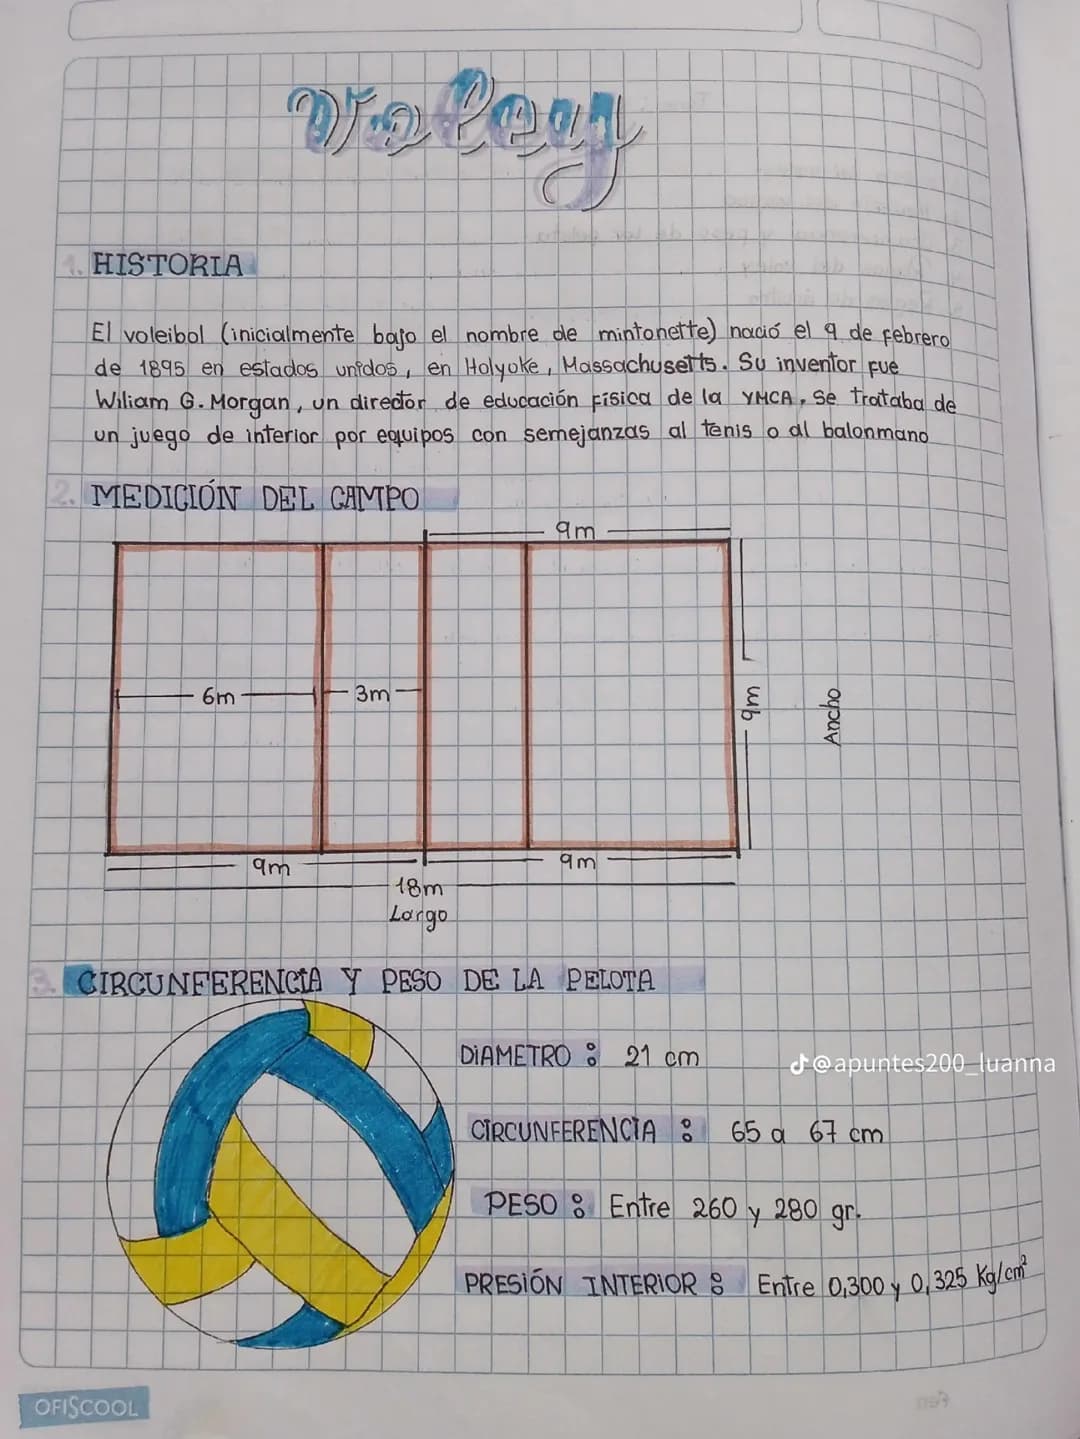 Voley
1. HISTORIA
El voleibol (inicialmente bajo el nombre de mintonette) nació el 9 de febrero
de 1895 en estados unidos, en Holyoke, Massachusetts. Su inventor fue
Wiliam G. Morgan, un director de educación física de la YMCA, Se trataba de
un juego de interior por equipos con semejanzas al tenis o al balonmano
2. MEDICIÓN DEL CAMPO
9m
6m
3m
9m
Ancho
9m
9m
18m
Largo
3. CIRCUNFERENCIA Y PESO DE LA PELOTA
DIAMETRO: 21 cm
@apuntes200_luanna
CIRCUNFERENCIA: 65 a 67 cm
PESO: Entre 260 y 280 gr.
PRESIÓN INTERIOR: Entre 0,300 y 0,325 Kg/cm²
OFISCOOL